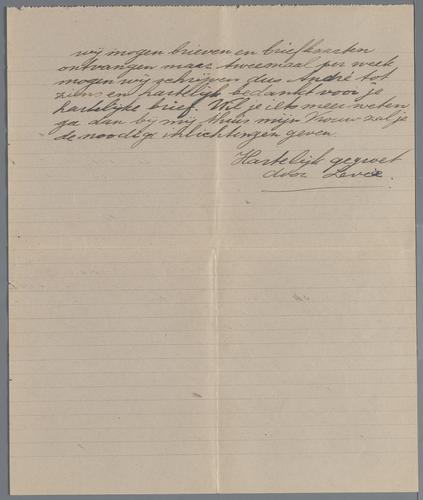 wij mogen brieven en briefkaarten
ontvangen maar tweemaal per week
mogen wij schrijven dus André tot
ziens en hartelijk bedankt voor je
hartelijke brief. Wil je iets meer weten
ga dan bij mij thuis mijn Vrouw zal je
de noodige inlichtingen geven
Hartelijk gegroet
door Levie.